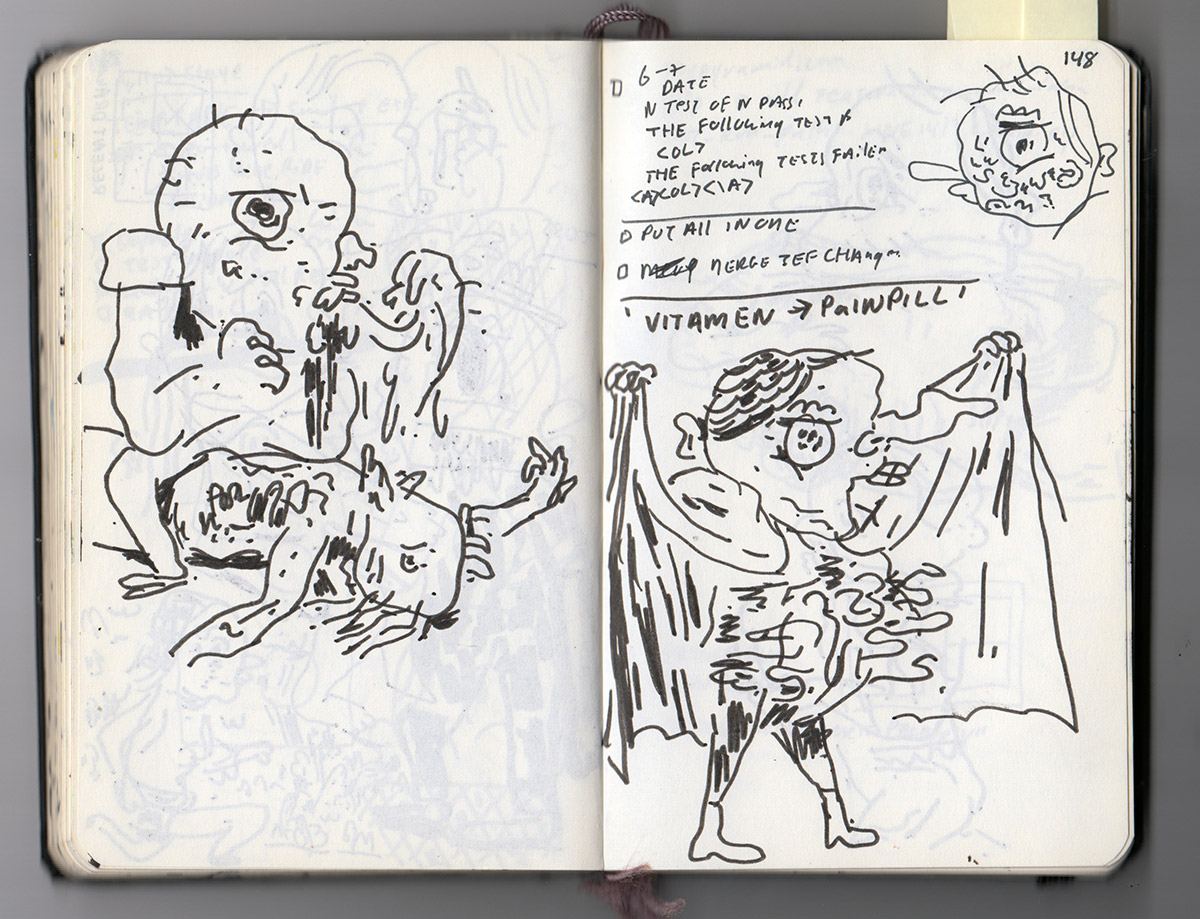 148
6-7
DATE
N TEST OF N PASS,
THE FOLLOWING TEST
COL>
THE FOLLOWING TESTS FAILED
<A>COL><\A>
PUT ALL IN ONE
MERGE JEF CHANges
'VITAMEN → PAINPILL'